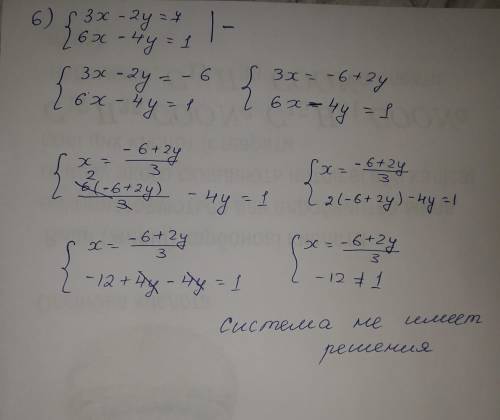 6) { 3x - 2y = 7 | -
6x - 4y = 1
{ 3x - 2y = - 6
6x - 4y = 1
{ 3x = -6 + 2y
6x - 4y = 1
{ x = (-6+2y)/3
2 6(-6+2y)/3 - 4y = 1
{ x = (-6+2y)/3
2(-6+2y) - 4y = 1
{ x = (-6+2y)/3
-12 + 4y - 4y = 1
{ x = (-6+2y)/3
-12 ≠ 1
система не имеет
решения